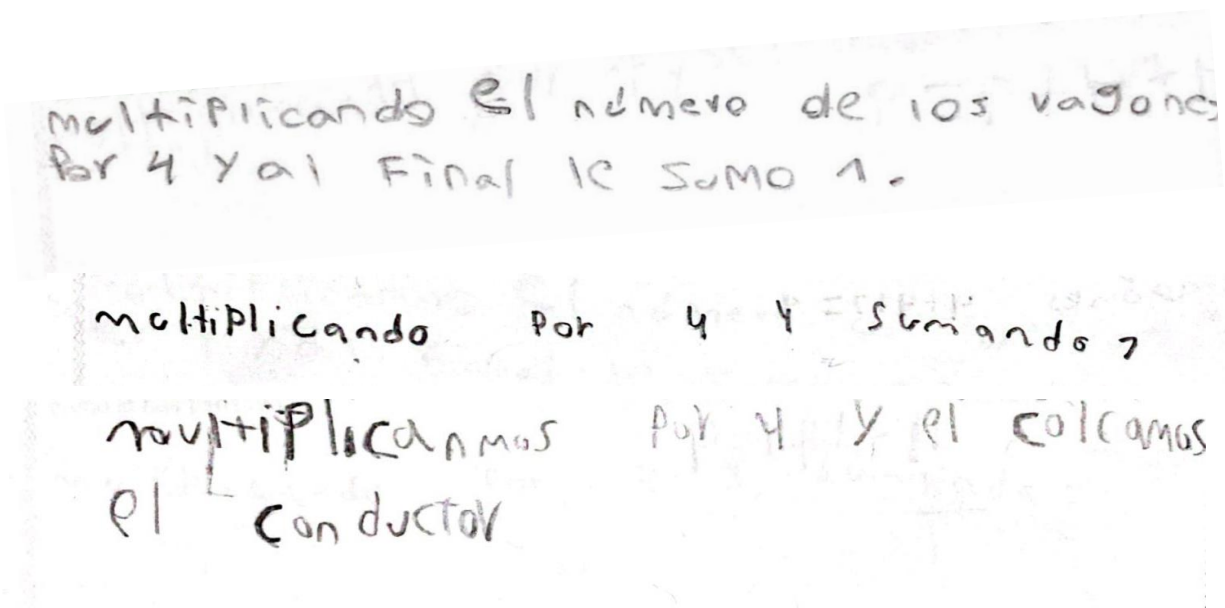 multiplicando el número de los vagones
Por 4 y al Final le sumo 1.
multiplicando por 4 y sumando 1
multiplicanmos por 4 y el colcamos
el conductor